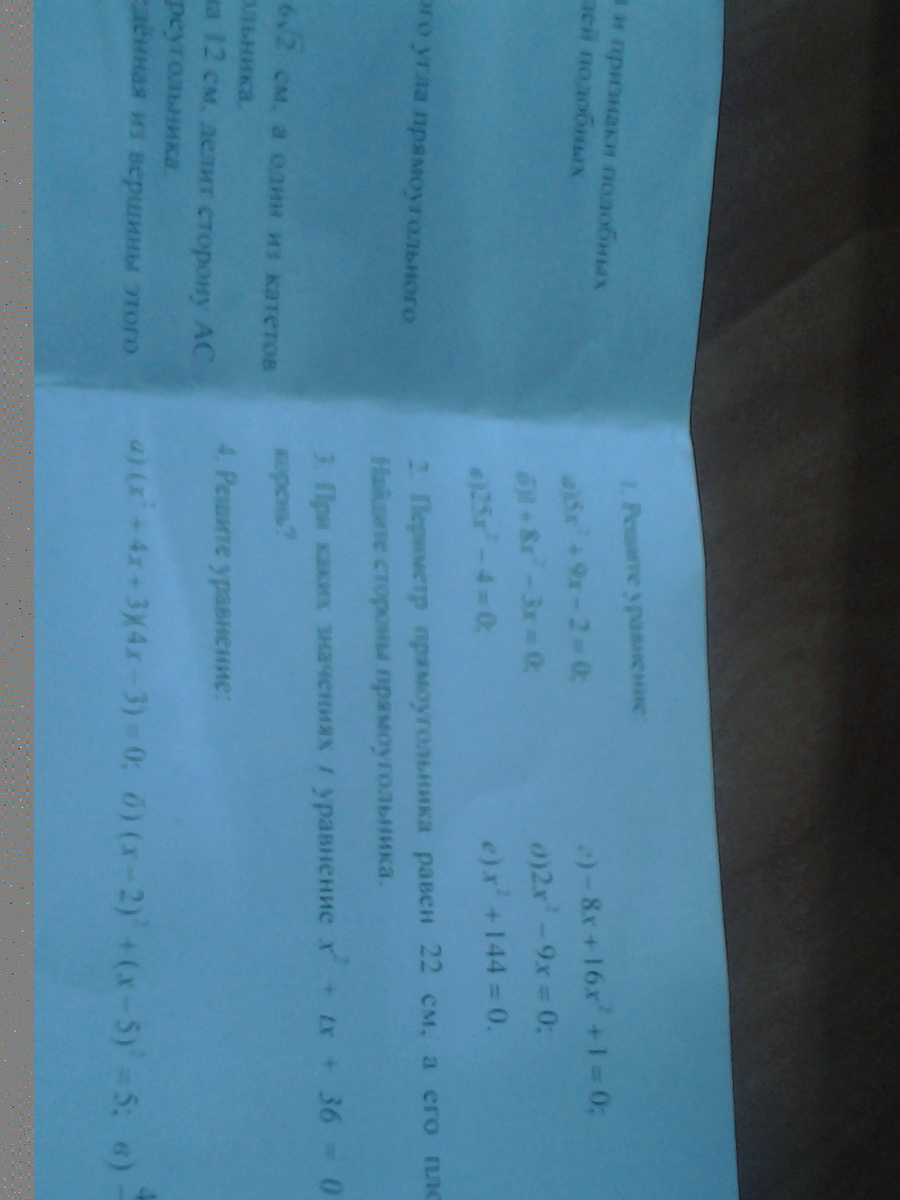 и признаки подобных
подобных
угла прямоугольного
6√2 см, а один из катетов
12 см, делит сторону АС
из вершины этого
1. Решите уравнение:
а)5x² + 9x − 2 = 0;
б)1 + 8x² − 3x = 0;
в)25x² − 4 = 0;
г) − 8x + 16x² + 1 = 0;
д)2x² − 9x = 0;
е) x² + 144 = 0.
2. Периметр прямоугольника равен 22 см, а его
Найдите стороны прямоугольника.
3. При каких значениях t уравнение x² + tx + 36 = 0
корень?
4. Решите уравнение:
а) (x² + 4x + 3)(4x − 3) = 0; б) (x − 2)² + (x − 5)² = 5; в)